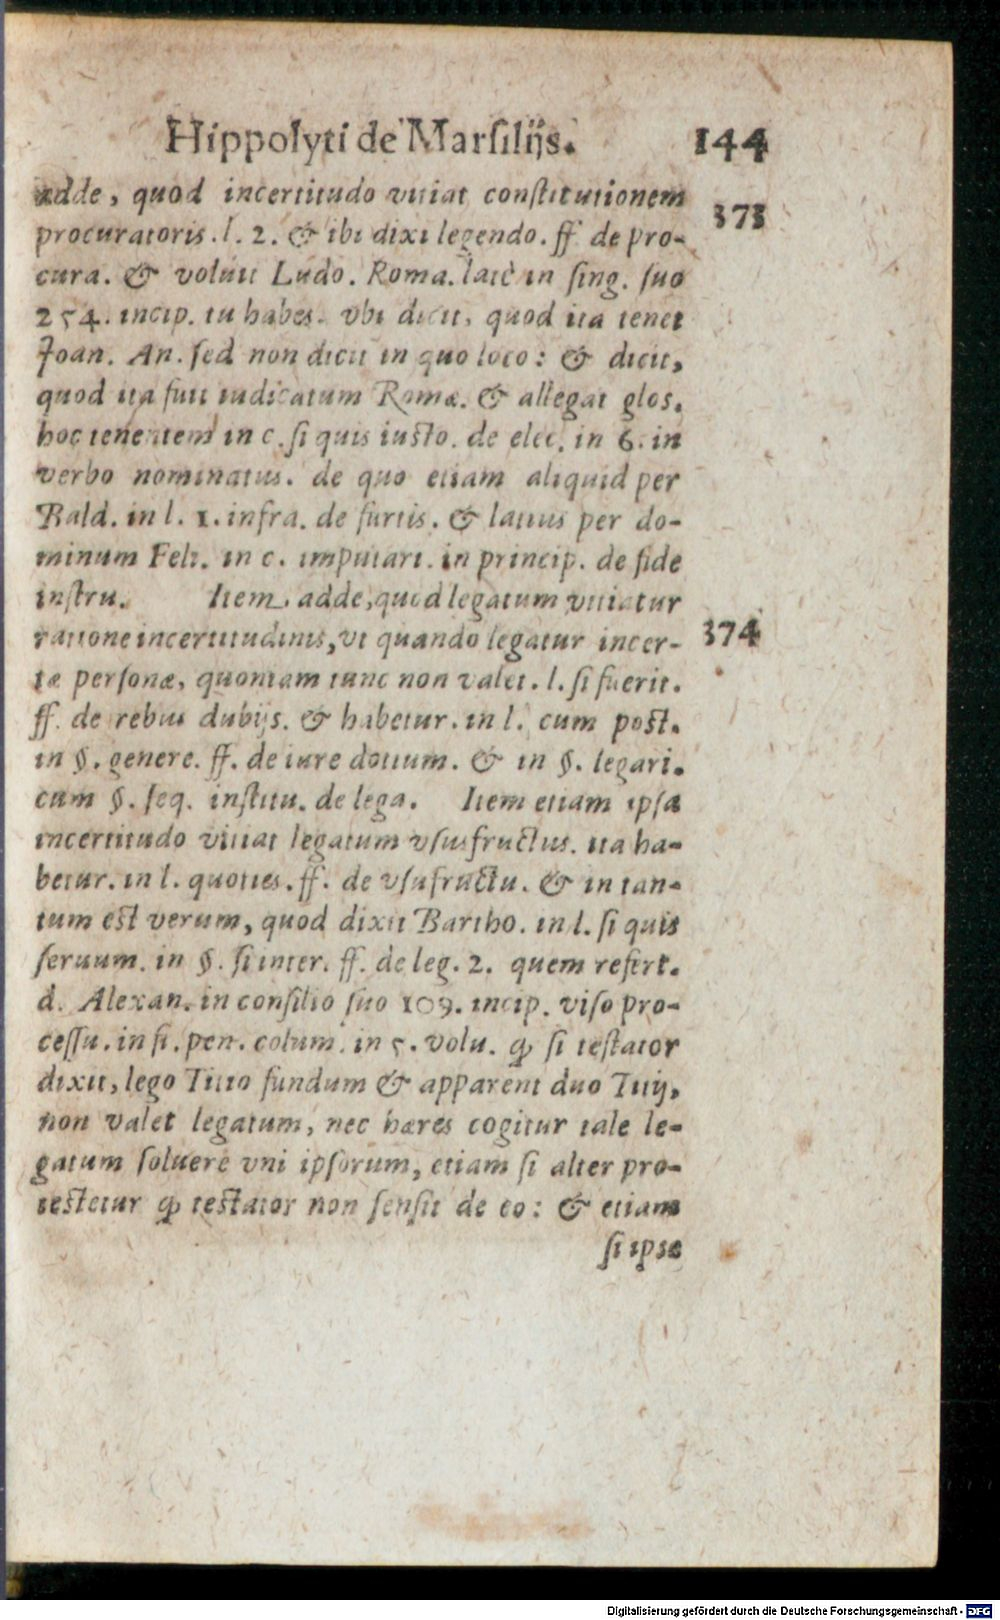 Hippolyti de Marſilijs. 144
adde, quod incertitudo vitiat conſtitutionem 373
procuratoris. l. 2. & ibi dixi legendo. ff. de pro-
cura. & voluit Ludo. Roma. latè in ſing. ſuo
254. incip. tu habes. vbi dicit, quod ita tenet
Joan. An. ſed non dicit in quo loco: & dicit,
quod ita fuit iudicatum Romæ. & allegat glos.
hoc tenentem in c. ſi quis iuſto. de elec. in 6. in
verbo nominatus. de quo etiam aliquid per
Bald. in l. 1. infra. de furtis. & latius per do-
minum Feli. in c. imputari. in princip. de fide
inſtru. Item adde, quod legatum vitiatur
ratione incertitudinis, vt quando legatur incer- 374
tæ perſonæ, quoniam tunc non valet. l. ſi fuerit.
ff. de rebus dubijs. & habetur. in l. cum poſt.
in §. genere. ff. de iure dotium. & in §. legari.
cum §. ſeq. inſtitu. de lega. Item etiam ipſa
incertitudo vitiat legatum vſusfructus. ita ha-
betur. in l. quoties. ff. de vſufructu. & in tan-
tum eſt verum, quod dixit Bartho. in l. ſi quis
ſeruum. in §. ſi inter. ff. de leg. 2. quem refert.
d. Alexan. in conſilio ſuo 109. incip. viſo pro-
ceſſu. in fi. pen. colum. in 5. volu. ꝙ ſi teſtator
dixit, lego Titio fundum & apparent duo Titij,
non valet legatum, nec hæres cogitur tale le-
gatum ſoluere vni ipſorum, etiam ſi alter pro-
teſtetur ꝙ teſtator non ſenſit de eo: & etiam
ſi ipſe
Digitalisierung gefördert durch die Deutsche Forschungsgemeinschaft - DFG